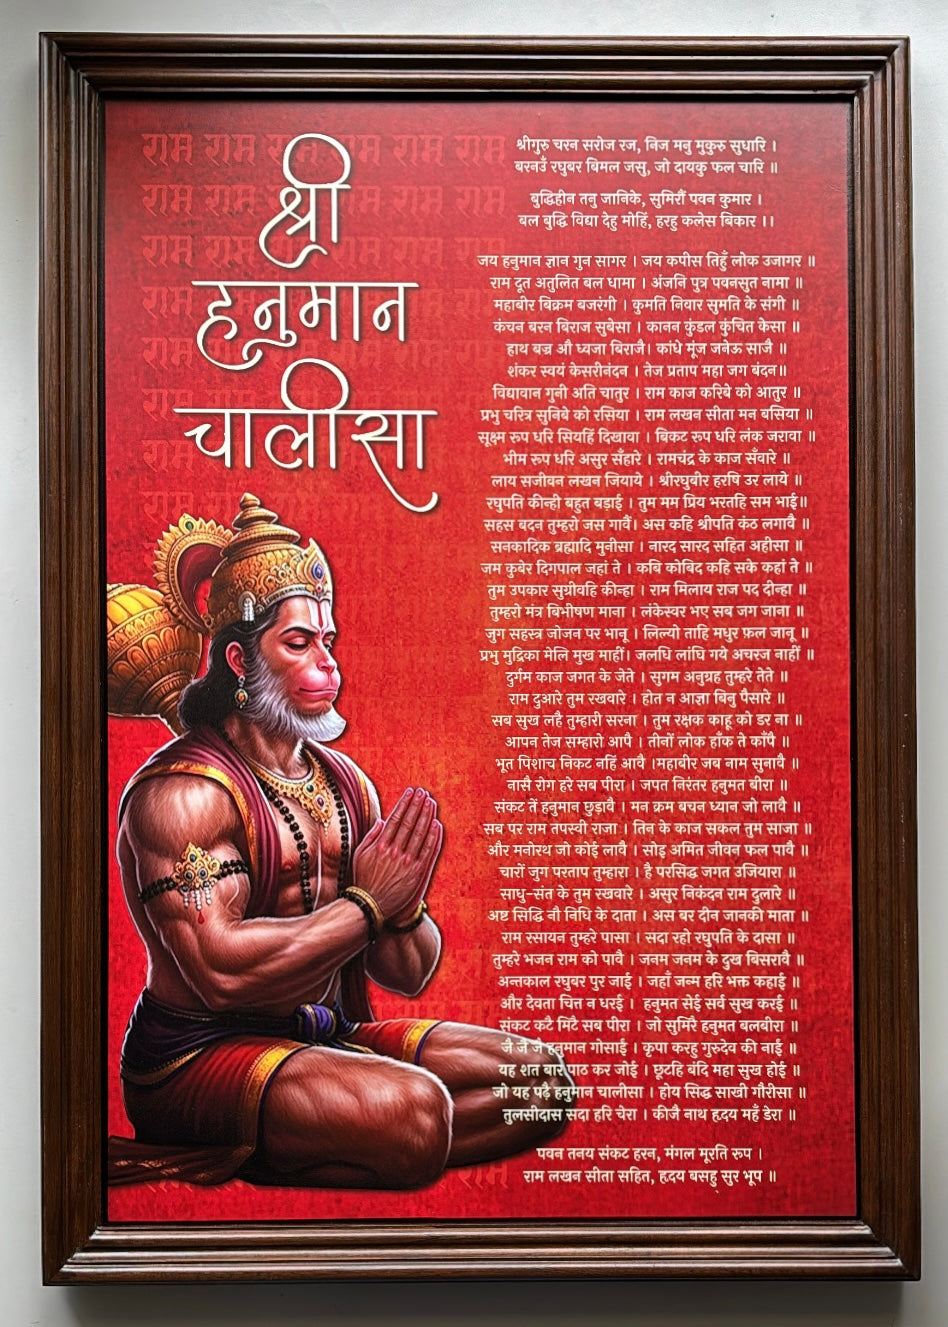 श्री
हनुमान
चालीसा
श्रीगुरु चरन सरोज रज, निज मनु मुकुरु सुधारि ।
बरनउँ रघुबर बिमल जसु, जो दायकु फल चारि ॥
बुद्धिहीन तनु जानिके, सुमिरौं पवन कुमार ।
बल बुद्धि विद्या देहु मोहिं, हरहु कलेस बिकार ।।
जय हनुमान ज्ञान गुन सागर । जय कपीस तिहुँ लोक उजागर ॥
राम दूत अतुलित बल धामा । अंजनि पुत्र पवनसुत नामा ॥
महाबीर बिक्रम बजरंगी । कुमति निवार सुमति के संगी ॥
कंचन बरन बिराज सुबेसा । कानन कुंडल कुंचित केसा ॥
हाथ बज्र औ ध्वजा बिराजै। कांधे मूंज जनेऊ साजै ॥
शंकर स्वयं केसरीनंदन । तेज प्रताप महा जग बंदन॥
विद्यावान गुनी अति चातुर । राम काज करिबे को आतुर ॥
प्रभु चरित्र सुनिबे को रसिया । राम लखन सीता मन बसिया ॥
सूक्ष्म रूप धरि सियहिं दिखावा । बिकट रूप धरि लंक जरावा ॥
भीम रूप धरि असुर सँहारे । रामचंद्र के काज सँवारे ॥
लाय सजीवन लखन जियाये । श्रीरघुबीर हरषि उर लाये ॥
रघुपति कीन्ही बहुत बड़ाई । तुम मम प्रिय भरतहि सम भाई॥
सहस बदन तुम्हरो जस गावैं। अस कहि श्रीपति कंठ लगावै ॥
सनकादिक ब्रह्मादि मुनीसा । नारद सारद सहित अहीसा ॥
जम कुबेर दिगपाल जहां ते । कबि कोबिद कहि सके कहां ते ॥
तुम उपकार सुग्रीवहि कीन्हा । राम मिलाय राज पद दीन्हा ॥
तुम्हरो मंत्र बिभीषण माना । लंकेस्वर भए सब जग जाना ॥
जुग सहस्त्र जोजन पर भानू । लिल्यो ताहि मधुर फ़ल जानू ॥
प्रभु मुद्रिका मेलि मुख माहीं। जलधि लांघि गये अचरज नाहीं ॥
दुर्गम काज जगत के जेते । सुगम अनुग्रह तुम्हरे तेते ॥
राम दुआरे तुम रखवारे । होत न आज्ञा बिनु पैसारे ॥
सब सुख लहै तुम्हारी सरना । तुम रक्षक काहू को डर ना ॥
आपन तेज सम्हारो आपै । तीनों लोक हाँक ते काँपै ॥
भूत पिशाच निकट नहिं आवै ।महाबीर जब नाम सुनावै ॥
नासै रोग हरे सब पीरा । जपत निरंतर हनुमत बीरा ॥
संकट तें हनुमान छुड़ावै । मन क्रम बचन ध्यान जो लावै ॥
सब पर राम तपस्वी राजा । तिन के काज सकल तुम साजा ॥
और मनोरथ जो कोई लावै । सोइ अमित जीवन फल पावै ॥
चारों जुग परताप तुम्हारा । है परसिद्ध जगत उजियारा ॥
साधु-संत के तुम रखवारे । असुर निकंदन राम दुलारे ॥
अष्ट सिद्धि नौ निधि के दाता । अस बर दीन जानकी माता ॥
राम रसायन तुम्हरे पासा । सदा रहो रघुपति के दासा ॥
तुम्हरे भजन राम को पावै । जनम जनम के दुख बिसरावै ॥
अन्तकाल रघुबर पुर जाई । जहाँ जन्म हरि भक्त कहाई ॥
और देवता चित्त न धरई । हनुमत सेई सर्व सुख करई ॥
संकट कटै मिटै सब पीरा । जो सुमिरै हनुमत बलबीरा ॥
जै जै जै हनुमान गोसाई । कृपा करहु गुरुदेव की नाई ॥
यह शत बार पाठ कर जोई । छूटहि बंदि महा सुख होई ॥
जो यह पढ़ै हनुमान चालीसा । होय सिद्ध साखी गौरीसा ॥
तुलसीदास सदा हरि चेरा । कीजै नाथ हृदय महँ डेरा ॥
पवन तनय संकट हरन, मंगल मूरति रूप ।
राम लखन सीता सहित, हृदय बसहु सुर भूप ॥